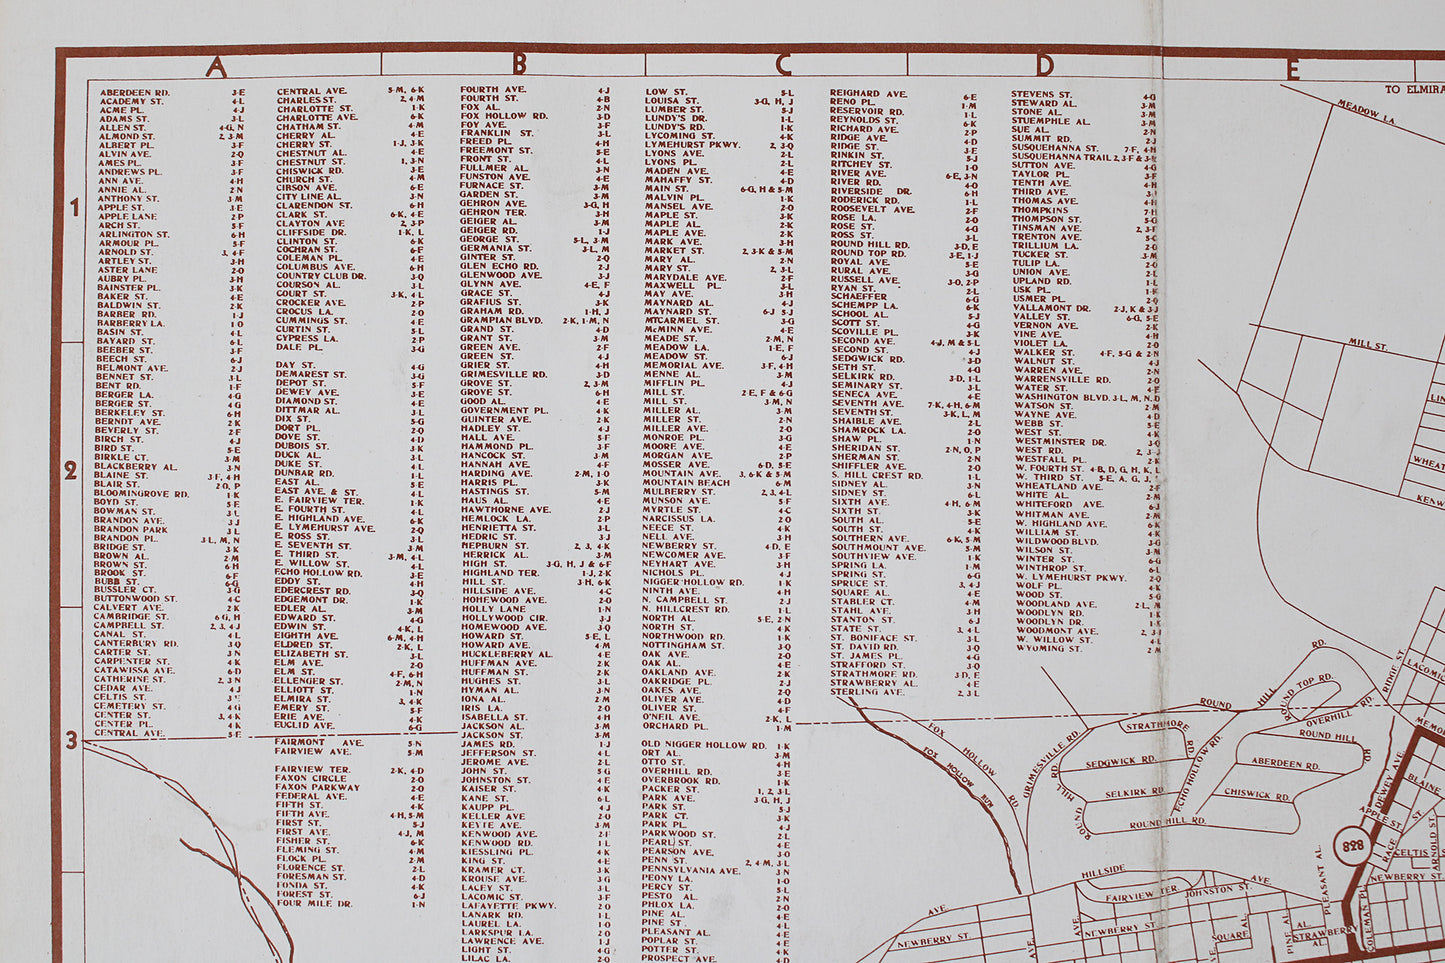 A B C D E
1
2
3
ABERDEEN RD. 3-E
ACADEMY ST. 4-L
ACME PL. 4-J
ADAMS ST. 3-L
ALLEN ST. 4-G, N
ALMOND ST. 2, 3-M
ALBERT PL. 3-F
ALVIN AVE. 2-Q
AMES PL. 3-F
ANDREWS PL. 3-F
ANN AVE. 4-H
ANNIE AL. 2-N
ANTHONY ST. 3-M
APPLE ST. 3-E
APPLE LANE 2-P
ARCH ST. 5-F
ARLINGTON ST. 6-H
ARMOUR PL. 5-F
ARNOLD ST. 3, 4-F
ARTLEY ST. 3-H
ASTER LANE 2-O
AUBRY PL. 3-H
BAINSTER PL. 3-K
BAKER ST. 4-E
BALDWIN ST. 2-K
BARBER RD. 1-J
BARBERRY LA. 1-O
BASIN ST. 4-L
BAYARD ST. 6-L
BEEBER ST. 3-F
BEECH ST. 6-J
BELMONT AVE. 2-J
BENNET ST. 3-L
BENT RD. 1-F
BERGER LA. 4-G
BERGER ST. 4-G
BERKELEY ST. 6-H
BERNDT AVE. 2-K
BEVERLY ST. 2-F
BIRCH ST. 4-J
BIRD ST. 5-E
BIRKLE CT. 3-M
BLACKBERRY AL. 3-N
BLAINE ST. 3-F, 4-H
BLAIR ST. 2-O, P
BLOOMINGROVE RD. 1-K
BOYD ST. 5-E
BOWMAN ST. 3-L
BRANDON AVE. 3-J
BRANDON PARK 3-L
BRANDON PL. 3-L, M, N
BRIDGE ST. 3-K
BROWN AL. 2-M
BROWN ST. 6-H
BROOK ST. 6-F
BUBB ST. 6-G
BUSSLER CT. 3-G
BUTTONWOOD ST. 4-C
CALVERT AVE. 2-K
CAMBRIDGE ST. 6-G, H
CAMPBELL ST. 2, 3, 4-J
CANAL ST. 4-L
CANTERBURY RD. 3-Q
CARTER ST. 3-N
CARPENTER ST. 4-K
CATAWISSA AVE. 6-D
CATHERINE ST. 2, 3-N
CEDAR AVE. 4-J
CELTIS ST.
CEMETERY ST. 4-G
CENTER ST. 3, 4-K
CENTER PL. 4-K
CENTRAL AVE. 5-E
CENTRAL AVE. 5-M, 6-K
CHARLES ST. 2, 4-M
CHARLOTTE ST. 1-K
CHARLOTTE AVE. 6-K
CHATHAM ST. 4-M
CHERRY AL. 4-E
CHERRY ST. 1-J, 3-K
CHESTNUT AL. 4-E
CHESTNUT ST. 1, 3-N
CHISWICK RD. 3-E
CHURCH ST. 4-M
CIBSON AVE. 6-E
CITY LINE AL. 3-N
CLARENDON ST. 6-H
CLARK ST. 6-K, 4-E
CLAYTON AVE. 2, 3-P
CLIFFSIDE DR. 1-K, L
CLINTON ST. 6-K
COCHRAN ST. 6-E
COLEMAN PL. 4-E
COLUMBUS AVE. 6-H
COUNTRY CLUB DR. 3-Q
COURSON AL. 3-L
COURT ST. 3-K, 4-L
CROCKER AVE. 2-P
CROCUS LA. 2-O
CUMMINGS ST. 4-E
CURTIN ST. 5-L
CYPRESS LA. 2-P
DALE PL. 3-G
DAY ST. 4-G
DEMAREST ST. 3-G
DEPOT ST. 5-F
DEWEY AVE. 3-E
DIAMOND ST. 4-E
DITTMAR AL. 3-L
DIX ST. 5-G
DORT PL. 2-O
DOVE ST. 4-D
DUBOIS ST. 4-K
DUCK AL. 3-L
DUKE ST. 4-L
DUNBAR RD. 1-L
EAST AL. 5-E
EAST AVE. & ST. 4-L
E. FAIRVIEW TER. 1-K
E. FOURTH ST. 4-L
E. HIGHLAND AVE. 6-K
E. LYMEHURST AVE. 2-Q
E. ROSS ST. 3-L
E. SEVENTH ST. 3-M
E. THIRD ST. 3-M, 4-L
E. WILLOW ST. 4-L
ECHO HOLLOW RD. 3-E
EDDY ST. 4-H
EDERCREST RD. 3-Q
EDGEMONT DR. 1-K
EDLER AL. 3-M
EDWARD ST. 4-G
EDWIN ST. 4-K, L
EIGHTH AVE. 6-M, 4-H
ELDRED ST. 2-K, L
ELIZABETH ST. 3-L
ELM AVE. 2-O
ELM ST. 4-F, 6-H
ELLENGER ST. 2-M, N
ELLIOTT ST. 1-N
ELMIRA ST. 3, 4-K
EMERY ST. 5-F
ERIE AVE. 4-K
EUCLID AVE. 6-G
FAIRMONT AVE. 5-N
FAIRVIEW AVE. 5-M
FAIRVIEW TER. 2-K, 4-D
FAXON CIRCLE 2-O
FAXON PARKWAY 2-O
FEDERAL AVE. 4-E
FIFTH ST. 4-K
FIFTH AVE. 4-H, 5-M
FIRST ST. 5-J
FIRST AVE. 4-J, M
FISHER ST. 6-K
FLEMING ST. 4-M
FLOCK PL. 2-M
FLORENCE ST. 2-L
FORESMAN ST. 4-D
FONDA ST. 4-K
FOREST ST. 6-J
FOUR MILE DR. 1-N
FOURTH AVE. 4-J
FOURTH ST. 4-B
FOX AL. 2-N
FOX HOLLOW RD. 3-D
FOY AVE. 3-F
FRANKLIN ST. 3-L
FREED PL. 4-H
FREEMONT ST. 5-E
FRONT ST. 4-L
FULLMER AL. 3-N
FUNSTON AVE. 4-E
FURNACE ST. 3-M
GARDEN ST. 3-M
GEHRON AVE. 3-G, H
GEHRON TER. 3-H
GEIGER AL. 3-M
GEIGER RD. 1-J
GEORGE ST. 5-L, 3-M
GERMANIA ST. 3-L, M
GINTER ST. 2-Q
GLEN ECHO RD. 2-J
GLENWOOD AVE. 3-J
GLYNN AVE. 4-E, F
GRACE ST. 4-J
GRAFIUS ST. 3-K
GRAHAM RD. 1-H, J
GRAMPIAN BLVD. 2-K, 1-M, N
GRAND ST. 4-D
GRANT ST. 3-M
GREEN AVE. 2-F
GREEN ST. 4-J
GRIER ST. 4-H
GRIMESVILLE RD. 3-D
GROVE ST. 2, 3-M
GROVE ST. 6-H
GOOD AL. 4-E
GOVERNMENT PL. 4-K
GUINTER AVE. 2-K
HADLEY ST. 4-J
HALL AVE. 5-F
HAMMOND PL. 3-F
HANCOCK ST. 3-M
HANNAH AVE. 4-F
HARDING AVE. 2-M, 1-O
HARRIS PL. 3-K
HASTINGS ST. 5-M
HAUS AL. 4-E
HAWTHORNE AVE. 2-J
HEMLOCK LA. 2-P
HENRIETTA ST. 3-L
HEDRIC ST. 3-J
HEPBURN ST. 2, 3, 4-K
HERRICK AL. 3-M
HIGH ST. 3-G, H, J & 6-F
HIGHLAND TER. 1-J, 2-K
HILL ST. 3-H, 6-K
HILLSIDE AVE. 4-C
HOHEWOOD AVE. 2-O
HOLLY LANE 1-N
HOLLYWOOD CIR. 3-J
HOMEWOOD AVE. 3-Q
HOWARD ST. 5-E, L
HOWARD AVE. 4-M
HUCKLEBERRY AL. 4-E
HUFFMAN AVE. 2-K
HUFFMAN ST. 2-K
HUGHES ST. 3-L
HYMAN AL. 3-N
IONA AL. 2-M
IRIS LA. 2-O
ISABELLA ST. 4-H
JACKSON AL. 3-M
JACKSON ST. 3-M
JAMES RD. 1-J
JEFFERSON ST. 4-L
JEROME AVE. 2-L
JOHN ST. 5-G
JOHNSTON ST. 4-E
KAISER ST. 4-K
KANE ST. 6-L
KAUPP PL. 4-J
KELLER AVE. 2-O
KEYTE AVE. 3-M
KENWOOD AVE. 2-F
KENWOOD RD. 1-L
KIESSLING PL. 4-K
KING ST. 4-E
KRAMER CT. 3-K
KROUSE AVE. 3-G
LACEY ST. 3-L
LACOMIC ST. 3-F
LAFAYETTE PKWY. 2-O
LANARK RD. 1-L
LAUREL LA. 1-O
LARKSPUR LA. 2-O
LAWRENCE AVE. 1-J
LIGHT ST. 4-G
LILAC LA. 2-Q
LOW ST. 5-L
LOUISA ST. 3-G, H, J
LUMBER ST. 5-J
LUNDY'S DR. 1-L
LUNDY'S RD. 1-K
LYCOMING ST. 4-K
LYMEHURST PKWY. 2, 3-Q
LYONS AVE. 2-L
LYONS PL. 2-L
MADEN AVE. 4-E
MAHAFFY ST. 4-D
MAIN ST. 6-G, H & 5-M
MALVIN PL. 1-K
MANSEL AVE. 2-O
MAPLE ST. 3-K
MAPLE AL. 2-K
MAPLE AVE. 2-K
MARK AVE. 3-H
MARKET ST. 2, 3-K & 5-M
MARY AL. 2-N
MARY ST. 2, 3-L
MARYDALE AVE. 2-F
MAXWELL PL. 3-L
MAY AVE. 3-H
MAYNARD AL. 4-J
MAYNARD ST. 6-J 5-J
MTCARMEL ST. 3-G
McMINN AVE. 4-E
MEADE ST. 2-M, N
MEADOW LA. 1-E, F
MEADOW ST. 6-J
MEMORIAL AVE. 3-F, 4-H
MENNE AL. 3-M
MIFFLIN PL. 4-J
MILL ST. 2 E, F & 6-G
MILL ST. 3-M, N
MILLER AL. 3-M
MILLER ST. 2-N
MILLER AVE. 2-O
MONROE PL. 3-G
MOORE AVE. 4-E
MORGAN AVE. 2-P
MOSSER AVE. 6-D, 5-E
MOUNTAIN AVE. 3, 6-K & 5-M
MOUNTAIN BEACH 6-M
MULBERRY ST. 2, 3, 4-L
MUNSON AVE. 5-F
MYRTLE ST. 4-C
NARCISSUS LA. 2-O
NEECE ST. 4-K
NELL AVE. 3-H
NEWBERRY ST. 4-D, E
NEWCOMER AVE. 3-F
NEYHART AVE. 3-H
NICHOLS PL. 4-J
NIGGER HOLLOW RD. 1-K
NINTH AVE. 4-H
N. CAMPBELL ST. 2-J
N. HILLCREST RD. 1-L
NORTH AL. 5-E, 2-N
NORTH ST. 4-K
NORTHWOOD RD. 1-K
NOTTINGHAM ST. 3-Q
OAK AVE. 2-O
OAK AL. 4-E
OAKLAND AVE. 2-K
OAKRIDGE PL. 2-J
OAKES AVE. 2-Q
OLIVER AVE. 4-D
OLIVER ST. 4-F
O'NEIL AVE. 2-K, L
ORCHARD PL. 1-M
OLD NIGGER HOLLOW RD. 1-K
ORT AL. 3-M
OTTO ST. 4-H
OVERHILL RD. 3-E
OVERBROOK RD. 1-K
PACKER ST. 1, 2, 3-L
PARK AVE. 3-G, H, J
PARK ST. 5-J
PARK CT. 3-K
PARK PL. 4-J
PARKWOOD ST. 2-L
PEARL ST. 4-E
PEARSON AVE. 3-O
PENN ST. 2, 4-M, 3-L
PENNSYLVANIA AVE. 3-N
PEONY LA. 1-O
PERCY ST. 5-L
PESTO AL. 2-N
PHLOX LA. 2-O
PINE AL. 4-E
PINE ST. 4-L
PLEASANT AL. 4-E
POPLAR ST. 4-E
POTTER ST. 4-K
PROSPECT AVE. 4-D
REIGHARD AVE. 6-E
RENO PL. 1-M
RESERVOIR RD. 1-L
REYNOLDS ST. 6-K
RICHARD AVE. 2-P
RIDGE AVE. 4-D
RIDGE ST. 3-E
RINKIN ST. 5-J
RITCHEY ST. 1-L
RIVER AVE. 6-E, 3-N
RIVER RD. 4-O
RIVERSIDE DR. 6-H
RODERICK RD. 1-L
ROOSEVELT AVE. 2-F
ROSE LA. 2-O
ROSE ST. 4-G
ROSS ST. 3-L
ROUND HILL RD. 3-D, E
ROUND TOP RD. 3-E, 1-J
ROYAL AVE. 5-E
RURAL AVE. 3-G
RUSSELL AVE. 3-O, 2-P
RYAN ST. 2-L
SCHAEFFER 6-G
SCHEMPP LA. 6-K
SCHOOL AL. 5-J
SCOTT ST. 4-G
SCOVILLE PL. 3-K
SECOND AVE. 4-J, M & 5-L
SECOND ST. 4-J
SEDGWICK RD. 3-D
SETH ST. 4-G
SELKIRK RD. 3-D, 1-L
SEMINARY ST. 3-L
SENECA AVE. 4-E
SEVENTH AVE. 7-K, 4-H, 6-M
SEVENTH ST. 3-K, L, M
SHAIBLE AVE. 2-L
SHAMROCK LA. 2-O
SHAW PL. 1-N
SHERIDAN ST. 2-N, O, P
SHERMAN ST. 2-N
SHIFFLER AVE. 2-O
S. HILL CREST RD. 1-L
SIDNEY AL. 3-N
SIDNEY ST. 6-L
SIXTH AVE. 4-H, 6-M
SIXTH ST. 3-K
SOUTH AL. 5-E
SOUTH ST. 4-K
SOUTHERN AVE. 6-K, 5-M
SOUTHMOUNT AVE. 5-M
SOUTHVIEW AVE. 1-K
SPRING LA. 1-M
SPRING ST. 6-G
SPRUCE ST. 3, 4-J
SQUARE AL. 4-E
STABLER CT. 4-M
STAHL AVE. 3-H
STANTON ST. 6-J
STATE ST. 3, 4-L
ST. BONIFACE ST. 3-L
ST. DAVID RD. 3-Q
ST. JAMES PL. 4-G
STRAFFORD ST. 3-Q
STRATHMORE RD. 3-D, E
STRAWBERRY AL. 4-E
STERLING AVE. 2, 3-L
STEVENS ST. 4-G
STEWARD AL. 3-M
STONE AL. 3-M
STUEMPHLE AL. 3-M
SUE AL. 2-N
SUMMIT RD. 2-J
SUSQUEHANNA ST. 7-F, 4-H
SUSQUEHANNA TRAIL 2, 3-F &
SUTTON AVE. 4-G
TAYLOR PL. 3-F
TENTH AVE. 4-H
THIRD AVE. 3-L
THOMAS AVE. 4-H
THOMPKINS 7-H
THOMPSON ST. 5-G
TINSMAN AVE. 2, 3-F
TRENTON AVE. 5-C
TRILLIUM LA. 2-O
TUCKER ST. 3-M
TULIP LA. 2-O
UNION AVE. 2-L
UPLAND RD. 1-L
USK PL. 1-K
USMER PL. 2-Q
VALLAMONT DR. 2-J, K & 3-J
VALLEY ST. 6-G, 5-E
VERNON AVE. 2-K
VINE AVE. 4-H
VIOLET LA. 2-O
WALKER ST. 4-F, 5-G & 2-N
WALNUT ST. 4-J
WARREN AVE. 2-N
WARRENSVILLE RD. 2-O
WATER ST. 4-E
WASHINGTON BLVD. 3-L, M, N, O
WATSON ST. 2-M
WAYNE AVE. 4-D
WEBB ST. 5-E
WEST ST. 4-K
WESTMINSTER DR. 3-Q
WEST RD. 2, 3-J
WESTFALL PL. 2-K
W. FOURTH ST. 4-B, D, G, H, K, L
W. THIRD ST. 5-E, A, G, J,
WHEATLAND AVE. 2-F
WHITE AL. 2-M
WHITEFORD AVE. 6-J
WHITMAN AVE. 2-M
W. HIGHLAND AVE. 6-K
WILLIAM ST. 4-K
WILDWOOD BLVD. 3-G
WILSON ST. 3-M
WINTER ST. 6-G
WINTHROP ST. 6-L
W. LYMEHURST PKWY. 2-Q
WOLF PL. 4-K
WOOD ST. 5-G
WOODLAND AVE. 2-L, M
WOODLYN RD. 1-K
WOODLYN DR. 1-K
WOODMONT AVE. 2, 3-J
W. WILLOW ST. 4-L
WYOMING ST. 2-M
TO ELMIRA
MEADOW LA.
MILL ST.
LIN
WHEAT
KENW
RD.
HILL
ROUND
ROUND TOP RD.
OVERHILL RD.
RIDGE ST.
LACOMIC
MEMO
STRATHMORE RD
ROUND HILL RD
SEDGWICK RD.
ECHO HOLLOW RD.
ABERDEEN RD.
SELKIRK RD
CHISWICK RD.
ROUND HILL RD.
ROUND HILL RD.
GRIMESVILLE RD.
FOX HOLLOW RD.
FOX HOLLOW RUN
DEWEY AVE.
BLAINE ST
APPLE ST.
RACE
828
CELTIS S
ARNOLD ST.
NEWBERRY ST.
HILLSIDE AVE
FAIRVIEW TER.
JOHNSTON ST.
AVE.
NEWBERRY ST.
AVE.
AVE.
NEWBERRY ST.
SQUARE AL.
PINE AL.
AL.
STRAWBERRY AL.
PLEASANT AL.
COLEMAN PL.